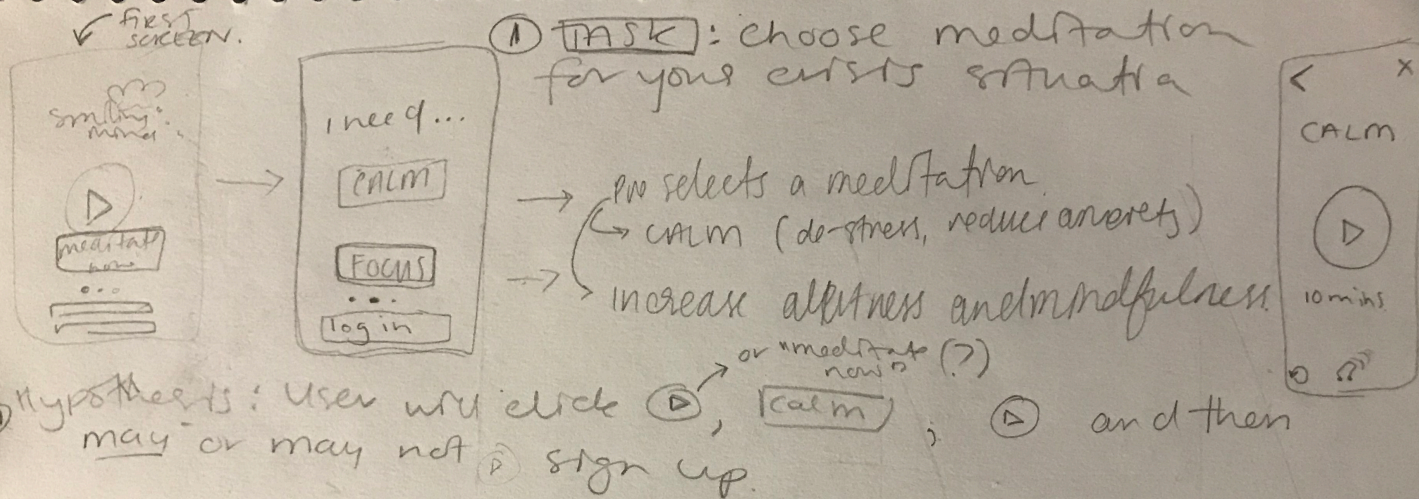 first
SCREEN.
smiling
mind
meditate
now
I need...
CALM
FOCUS
log in
① TASK: choose meditation
for your crisis situatio
selects a meditation.
CALM (de-stress, reduce anxiety)
increase alertness and mindfulness.
< X
CALM
10 mins
or "meditate
now" (?)
Hypothesis: User will click , calm , and then
may or may not sign up.